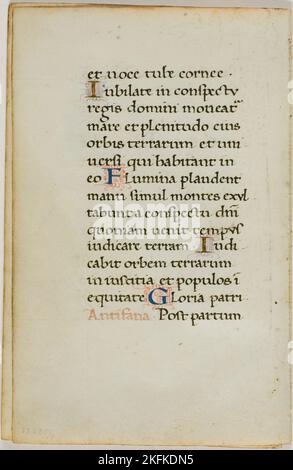 et uoce tube cornee.
Iubilate in conspectu
regis domini moueat̃
mare et plenitudo eius
orbis terrarum et uni
uersi qui habitant in
eo Flumina plaudent
manu simul montes exul
tabunt a conspectu dñi
quoniam uenit tempus
iudicare terram Iudi
cabit orbem terrarum
in iusticia et populos ī
equitate Gloria patri
Antifana Post partum
alamy
Image ID: 2KFKDN5
www.alamy.com